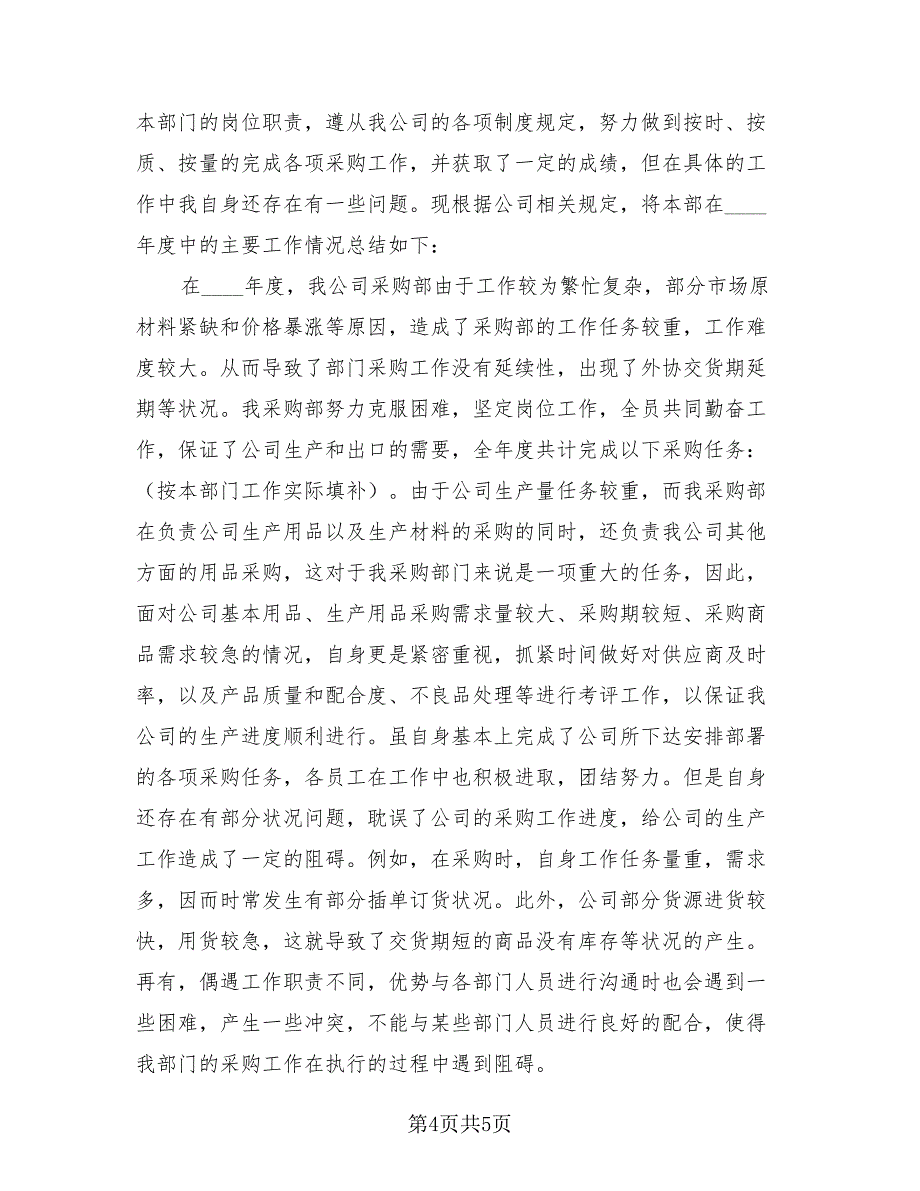 本部门的岗位职责，遵从我公司的各项制度规定，努力做到按时、按
质、按量的完成各项采购工作，并获取了一定的成绩，但在具体的工
作中我自身还存在有一些问题。现根据公司相关规定，将本部在____
年度中的主要工作情况总结如下：
在____年度，我公司采购部由于工作较为繁忙复杂，部分市场原
材料紧缺和价格暴涨等原因，造成了采购部的工作任务较重，工作难
度较大。从而导致了部门采购工作没有延续性，出现了外协交货期延
期等状况。我采购部努力克服困难，坚定岗位工作，全员共同勤奋工
作，保证了公司生产和出口的需要，全年度共计完成以下采购任务：
（按本部门工作实际填补）。由于公司生产量任务较重，而我采购部
在负责公司生产用品以及生产材料的采购的同时，还负责我公司其他
方面的用品采购，这对于我采购部门来说是一项重大的任务，因此，
面对公司基本用品、生产用品采购需求量较大、采购期较短、采购商
品需求较急的情况，自身更是紧密重视，抓紧时间做好对供应商及时
率，以及产品质量和配合度、不良品处理等进行考评工作，以保证我
公司的生产进度顺利进行。虽自身基本上完成了公司所下达安排部署
的各项采购任务，各员工在工作中也积极进取，团结努力。但是自身
还存在有部分状况问题，耽误了公司的采购工作进度，给公司的生产
工作造成了一定的阻碍。例如，在采购时，自身工作任务量重，需求
多，因而时常发生有部分插单订货状况。此外，公司部分货源进货较
快，用货较急，这就导致了交货期短的商品没有库存等状况的产生。
再有，偶遇工作职责不同，优势与各部门人员进行沟通时也会遇到一
些困难，产生一些冲突，不能与某些部门人员进行良好的配合，使得
我部门的采购工作在执行的过程中遇到阻碍。
第4页共5页